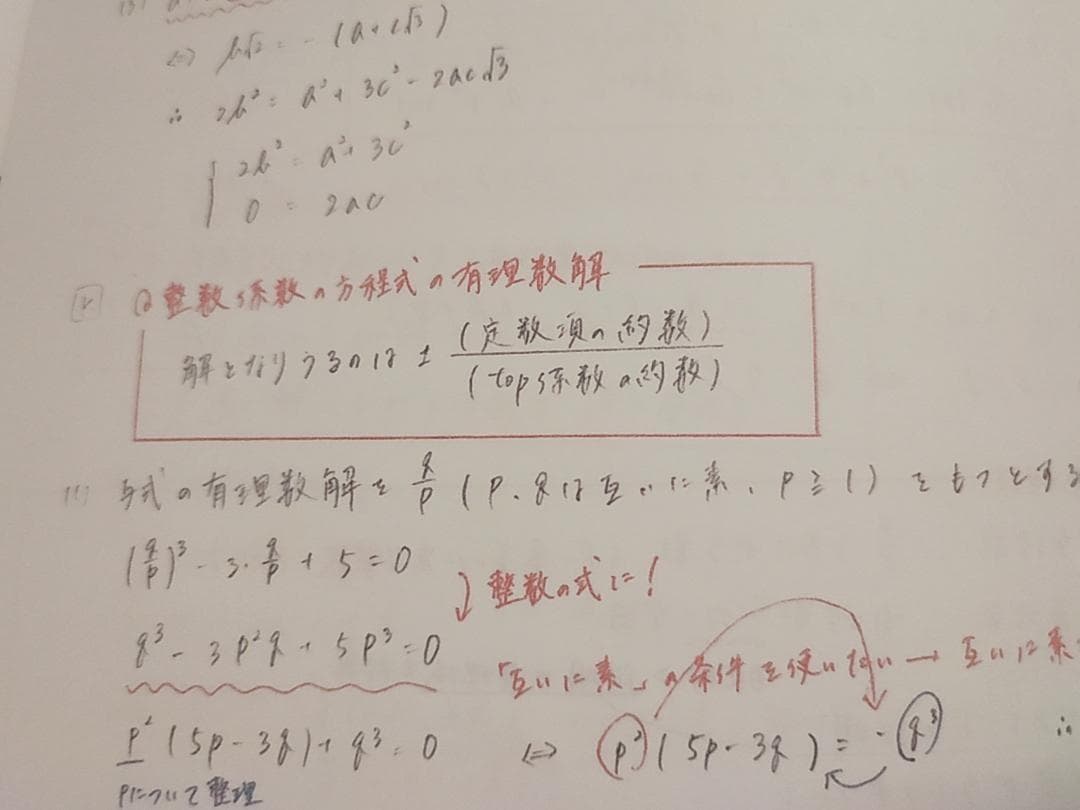 (3)
⇔ b√2 = - (a + c√3)
∴ 2b² = a² + 3c² - 2ac√3
{ 2b² = a² + 3c²
0 = 2ac
整数係数の方程式の有理数解
解となりうるのは ± (定数項の約数)/(top係数の約数)
(1) 与式の有理数解を q/p (p、qは互いに素、p≧1) をもつとする
(q/p)³ - 3・q/p + 5 = 0
整数の式に!
q³ - 3p²q + 5p³ = 0
「互いに素」の条件を使いたい → 互いに素
p²(5p - 3q) + q³ = 0 ⇔ p²(5p - 3q) = -q³ ∴
pについて整理